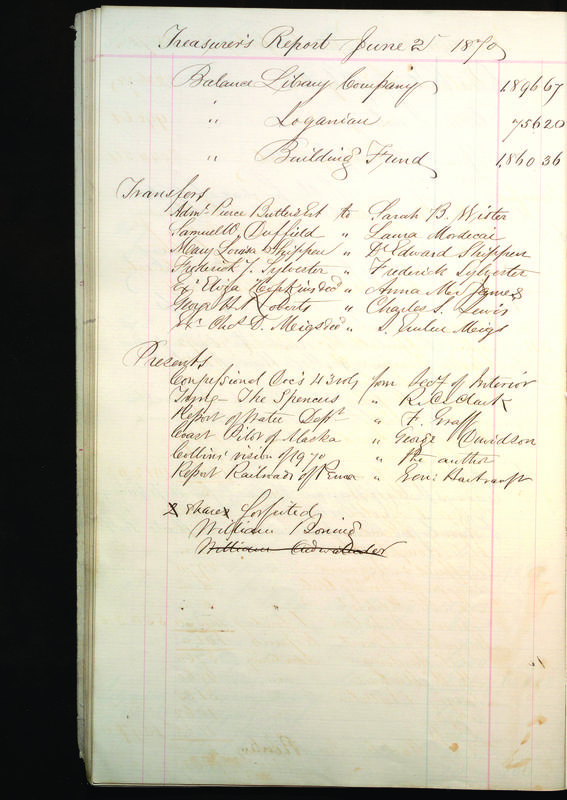 Treasurer's Report June 2d 1870
Balance Library Company 1,896 67
" Loganian 756 20
" Building Fund 1,860 36
Transfers
Admr Pierce Butler's Est to Sarah B. Wister
Samuel W. Duffield " Laura Mordecai
Mary Louisa Shippen " Dr Edward Shippen
Frederick J. Sylvester " Frederick Sylvester
Exr Eliza Hopkins decd " Anna M. James
George H. Roberts " Charles S. Lewis
Exr Chas D. Meigs decd " J. Emlen Meigs
Presents
Congressional Doc's 43 vols from Sect of Interior
The Spencers " R. C. S. Clark
Report of Water Dept " F. Graff
Coast Pilot of Alaska " George Davidson
Collins' vision of 1970 " the author
Report Railroads of Penna " Hartranft
share forfeited
William Boning
William Cadwalader